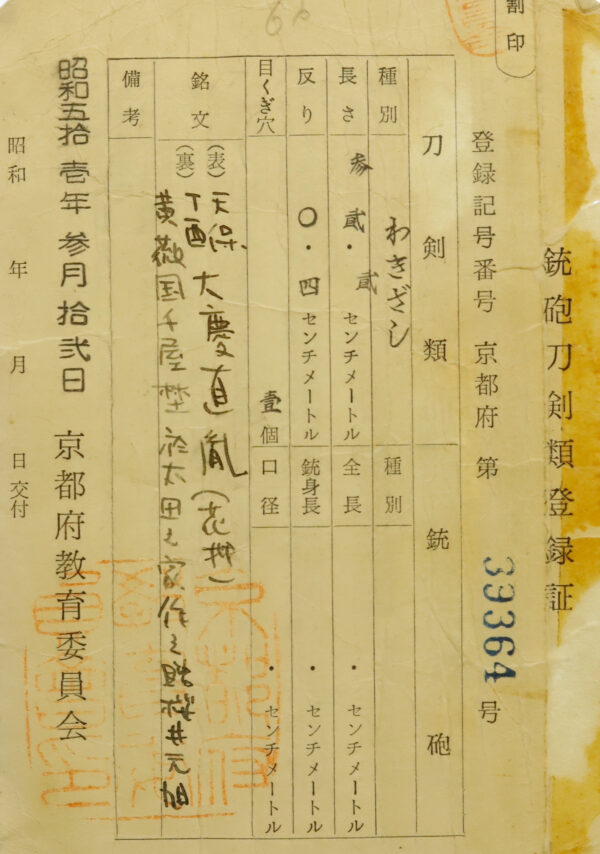 割印
銃砲刀剣類登録証
登録記号番号 京都府 第 39364 号
刀剣類
銃砲
種別 わきざし
種別
長さ 参弐.弐センチメートル
全長 .センチメートル
反り 〇.四センチメートル
銃身長 .センチメートル
目くぎ穴 壹個
口径 .センチメートル
銘文
(表) 天保丁酉 大慶直胤(花押)
(裏) 黄薇国千屋 於太田之家作之 櫻井元旭
備考
昭和五拾壱年参月拾弐日 京都府教育委員会
昭和 年 月 日交付